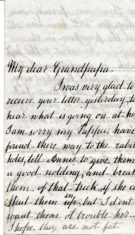 My dear Grandpapa
I was very glad to
receive your letter yesterday, to
hear what is going on at ho
I am sorry my Puppies have
found there way to the rabbit
holes, tell Annie to give them
a good scolding, and break
them of that trick, if she ca
shut them up, but I don't
want them to trouble her
I hope they are not get